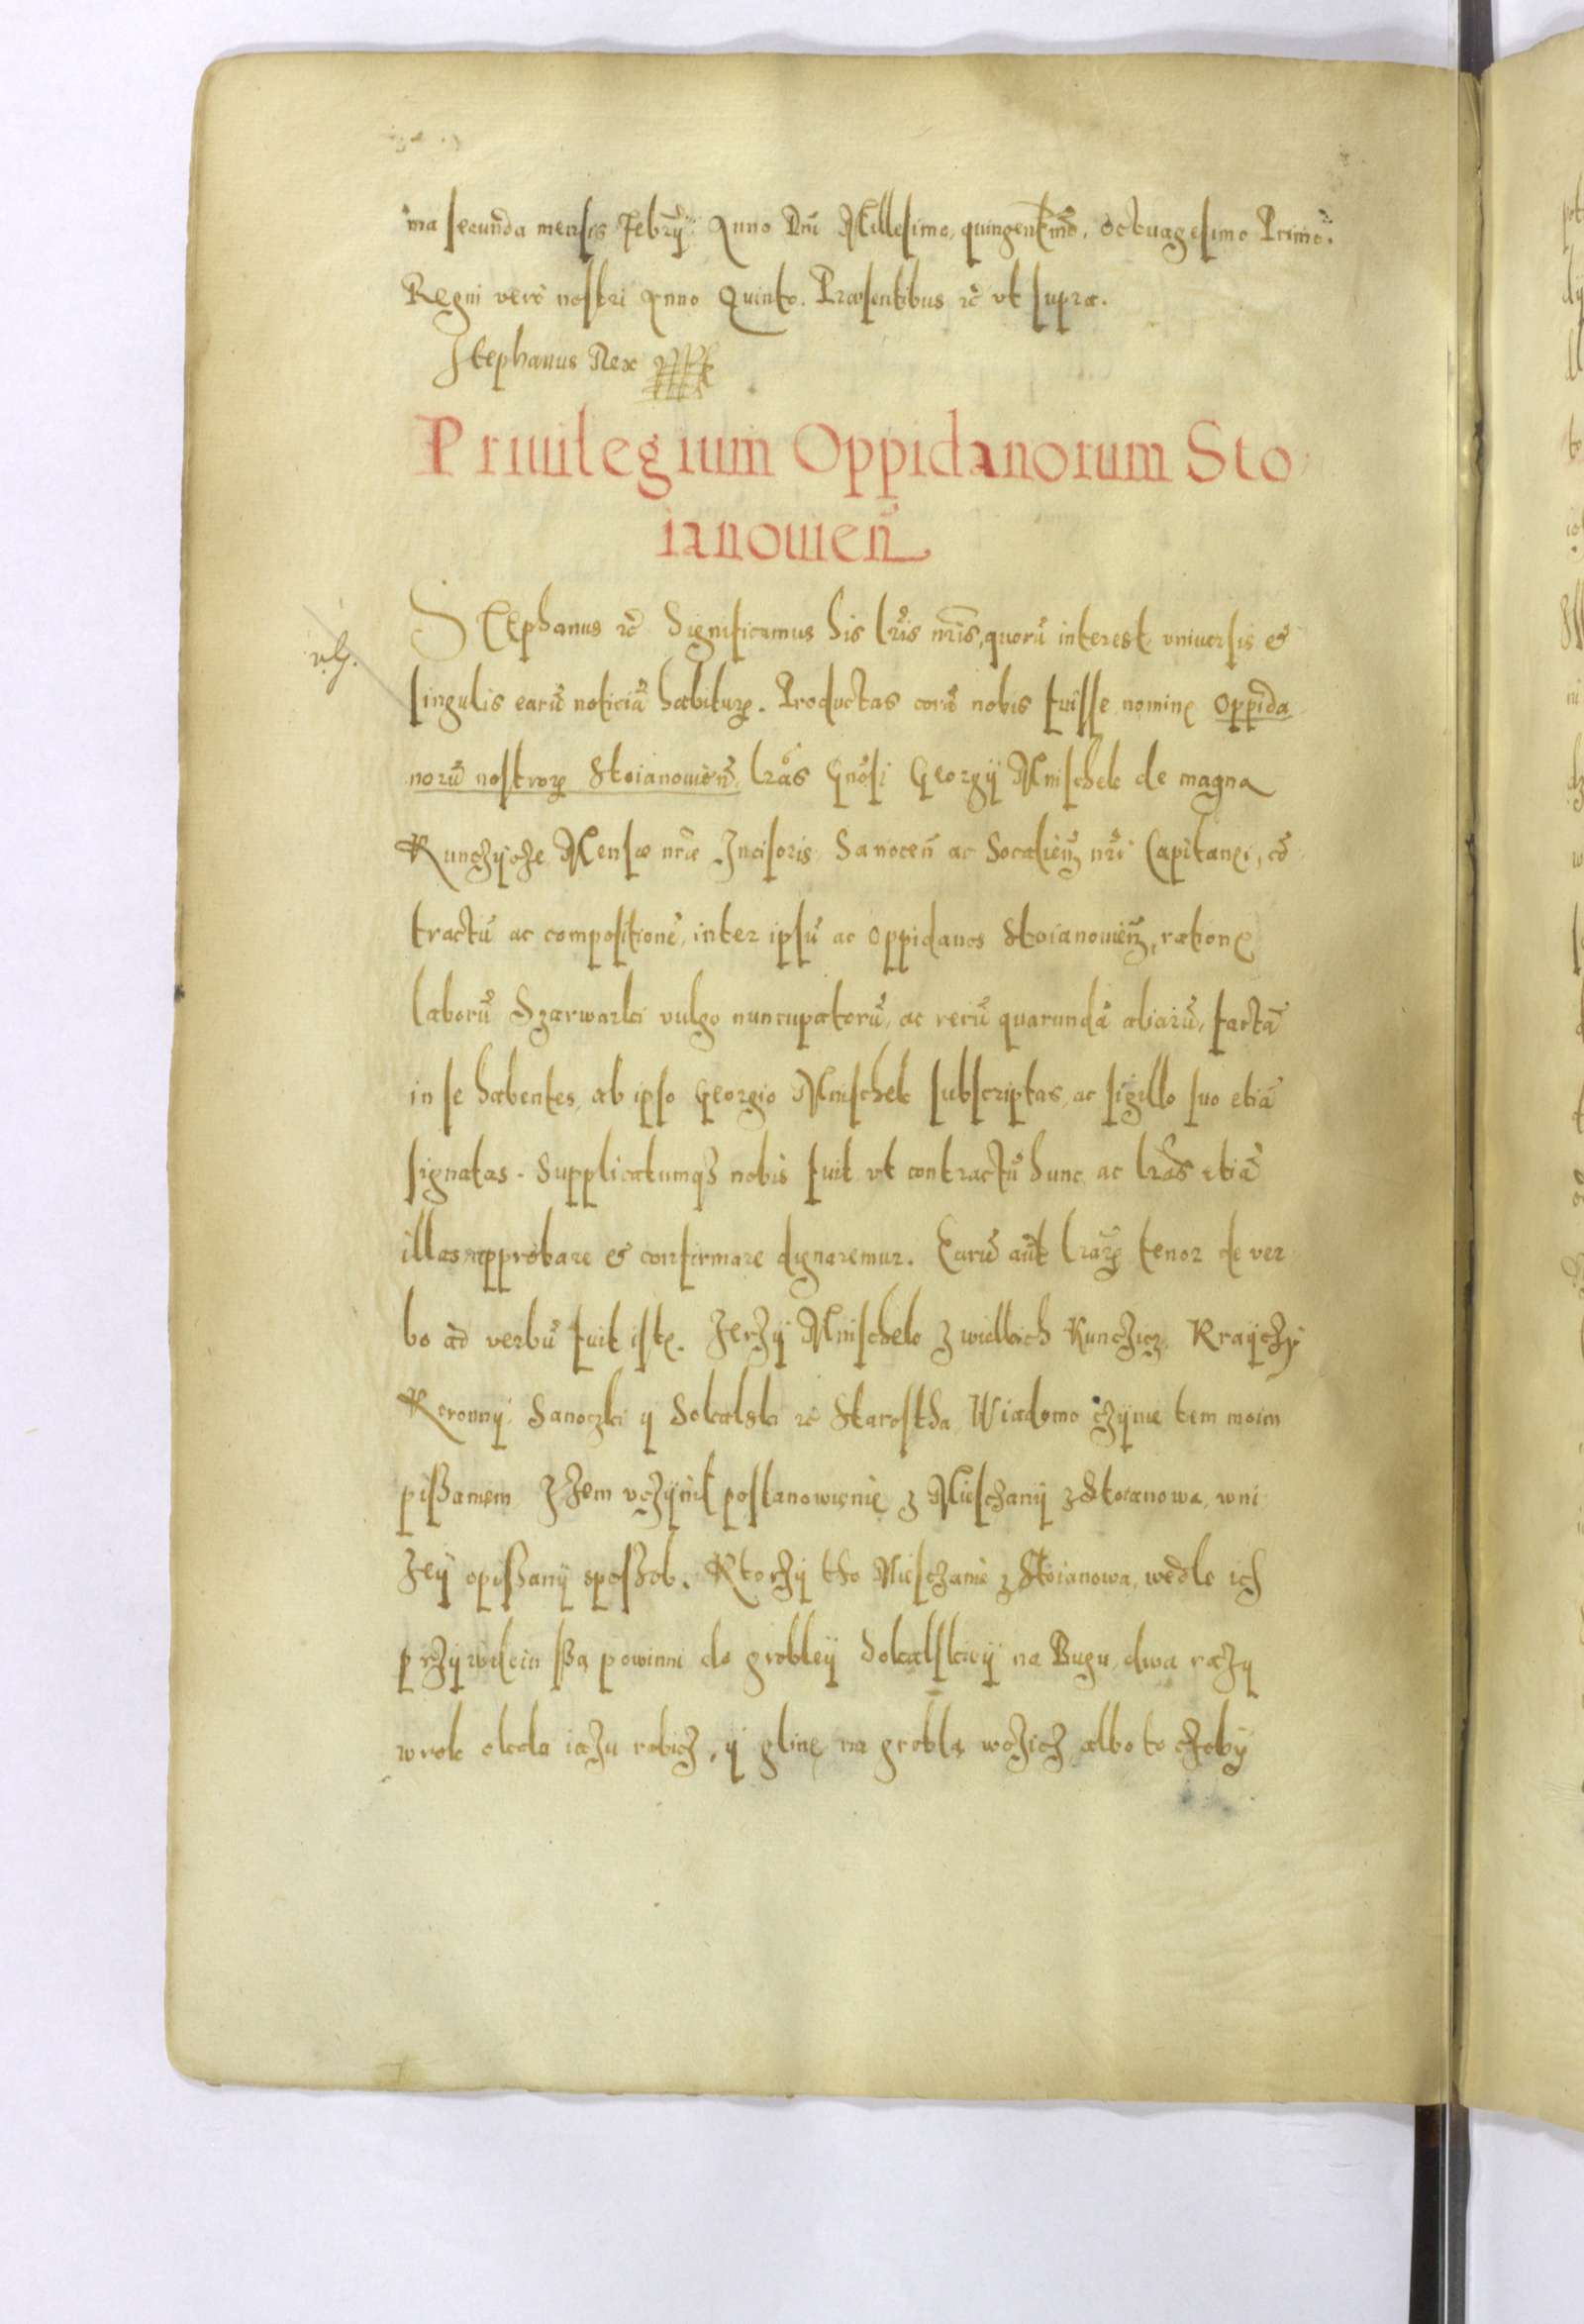 ma secunda mensis Febrȳ Anno Dni Millesimo, quingentmo, Octuagesimo Primo.
Regni vero nostri Anno Quinto. Præsentibus rc̃ vt supra.
Stephanus Rex
Priuilegium Oppidanorum Sto
ianouien̄
STephanus rc̃ Significamus his lr̃is nr̃is, quorū interest vniuersis et
singulis earū noticiā habituꝝ. Productas corā nobis fuisse nomine Oppida
norū nostroꝝ Stoianouien̄ lr̃as Gnosi Georgij Mnischek de magna
Kunczycze Mensæ nr̃æ Incisoris Sanocen̄ ac Socalien̄ nr̃i Capitanei, cō
tractū ac compositionē, inter ipsū ac Oppidanos Stoianouien̄, ratione
laborū Szarwarki vulgo nuncupatorū, ac rerū quarundā aliarū, factā
in se habentes, ab ipso Georgio Mnischek subscriptas, ac sigillo suo etiā
signatas. Supplicatumqȝ nobis fuit vt contractū hunc ac lr̃as etiā
illas approbare et confirmare dignaremur. Earū aūt lr̃aꝝ tenor de ver
bo ad verbū fuit iste. Jerzÿ Mnischek z wielkich Kunczicz, Kraÿczÿ
Koronnÿ Sanoczki ÿ Sokalski rc̃ Starostha Wiadomo czÿnie tem moim
pißaniem Jżem vczÿnił postanowienie z Miesczanÿ z Stoianowa, wni
żeÿ opißanÿ sposzob. Ktorzÿ tho Miesczanie z Stoianowa, wedle ich
przÿwileiu ßą powinni do grobleÿ Sokalskieÿ na Bugu, dwa razÿ
wrok około iazu robicz, ÿ glinę na groblą wozicz albo to czobÿ